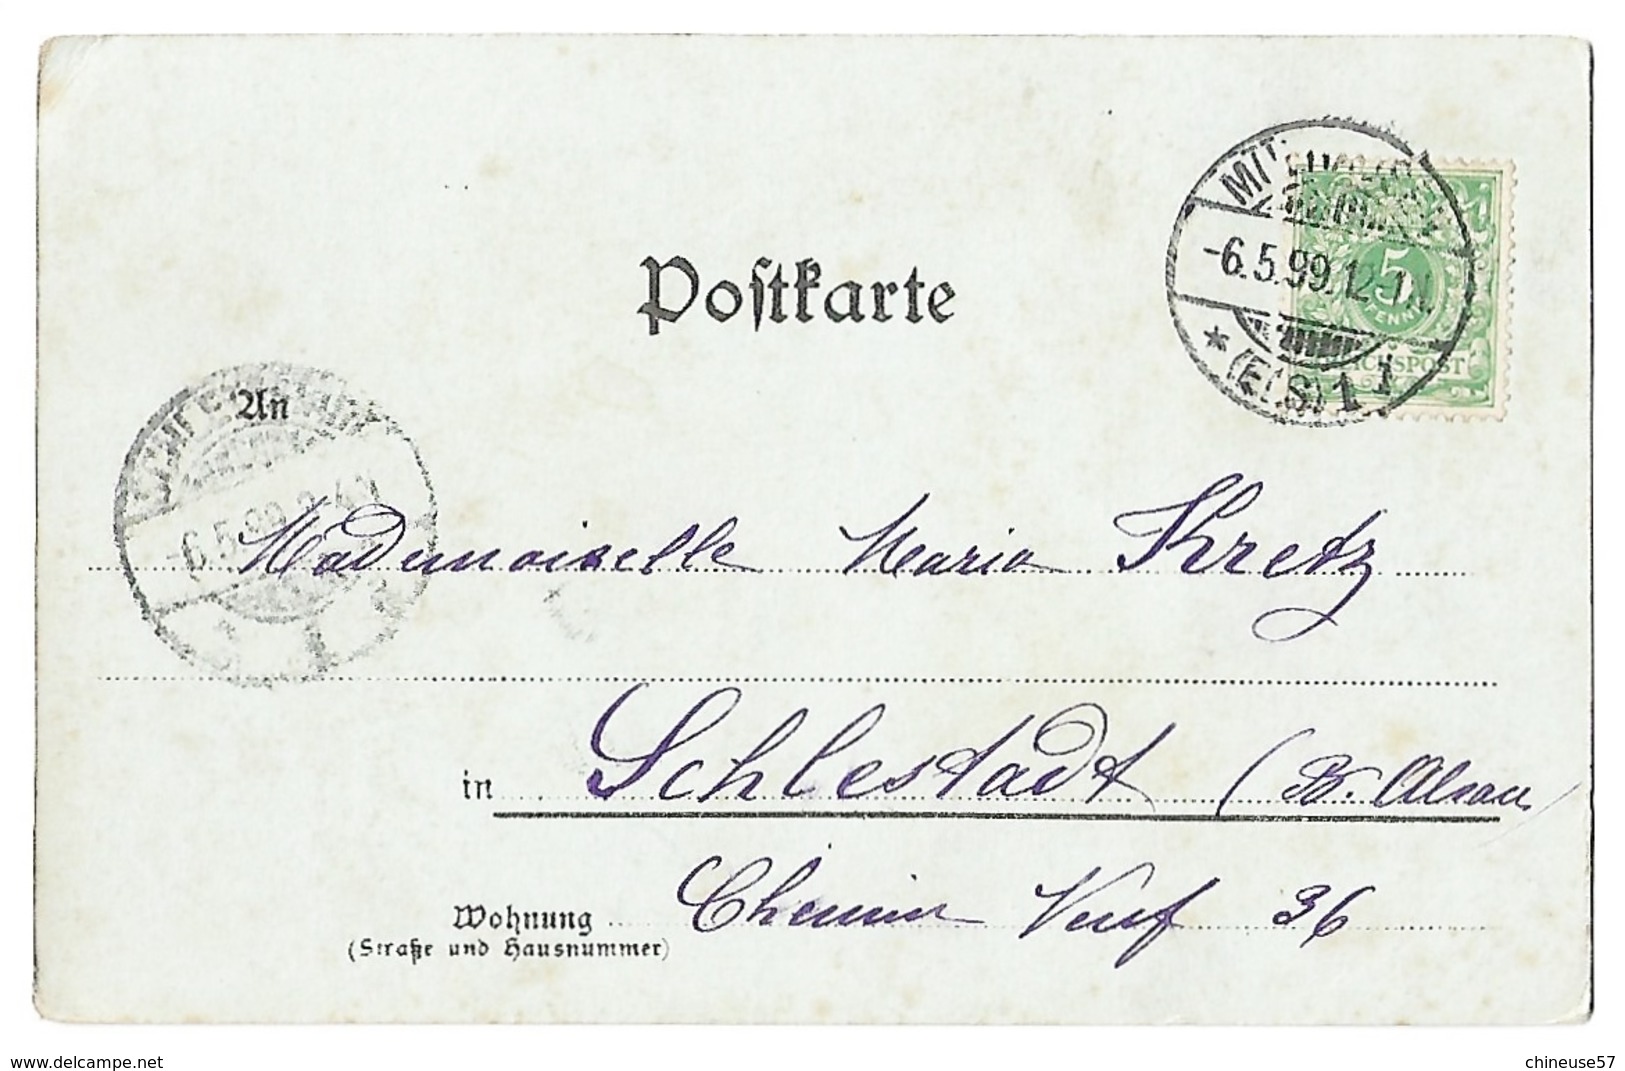 Postkarte
-6.5.99.12-1
5
PFENNIG
REICHSPOST
(ELS) 1
An
-6.5.99
Mademoiselle Maria Kretz
in Schlestadt (B. Alsace)
Chemin Neuf 36
Wohnung
(Straße und Hausnummer)
www.delcampe.net
chineuse57